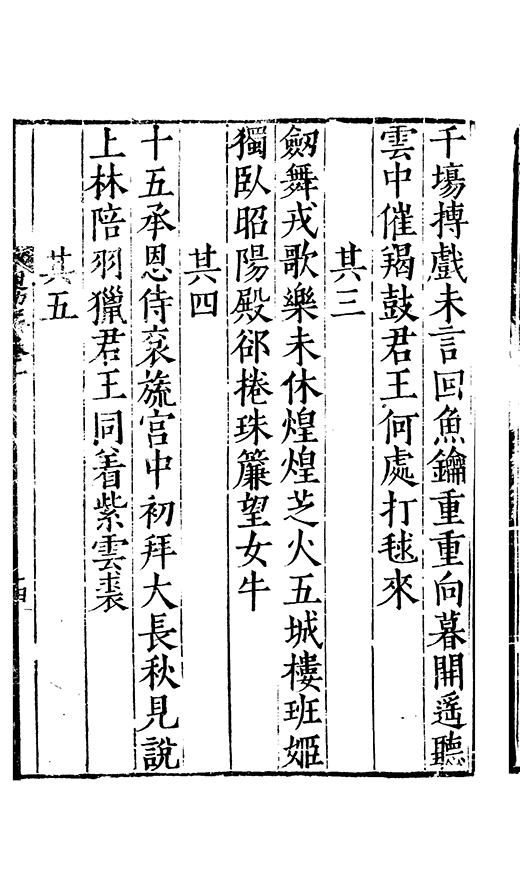 千塲摶戲未言回魚鑰重重向暮開遥聽
雲中催羯鼓君王何處打毬來
其三
劔舞戎歌樂未休煌煌芝火五城樓班姬
獨臥昭陽殿郤捲珠簾望女牛
其四
十五承恩侍衮旒宫中初拜大長秋見說
上林陪羽獵君王同着紫雲裘
其五